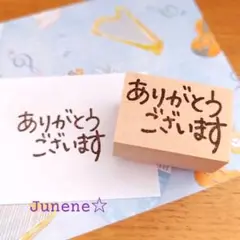 ありがとう
ございます
ありがとう
ございます
Junene☆